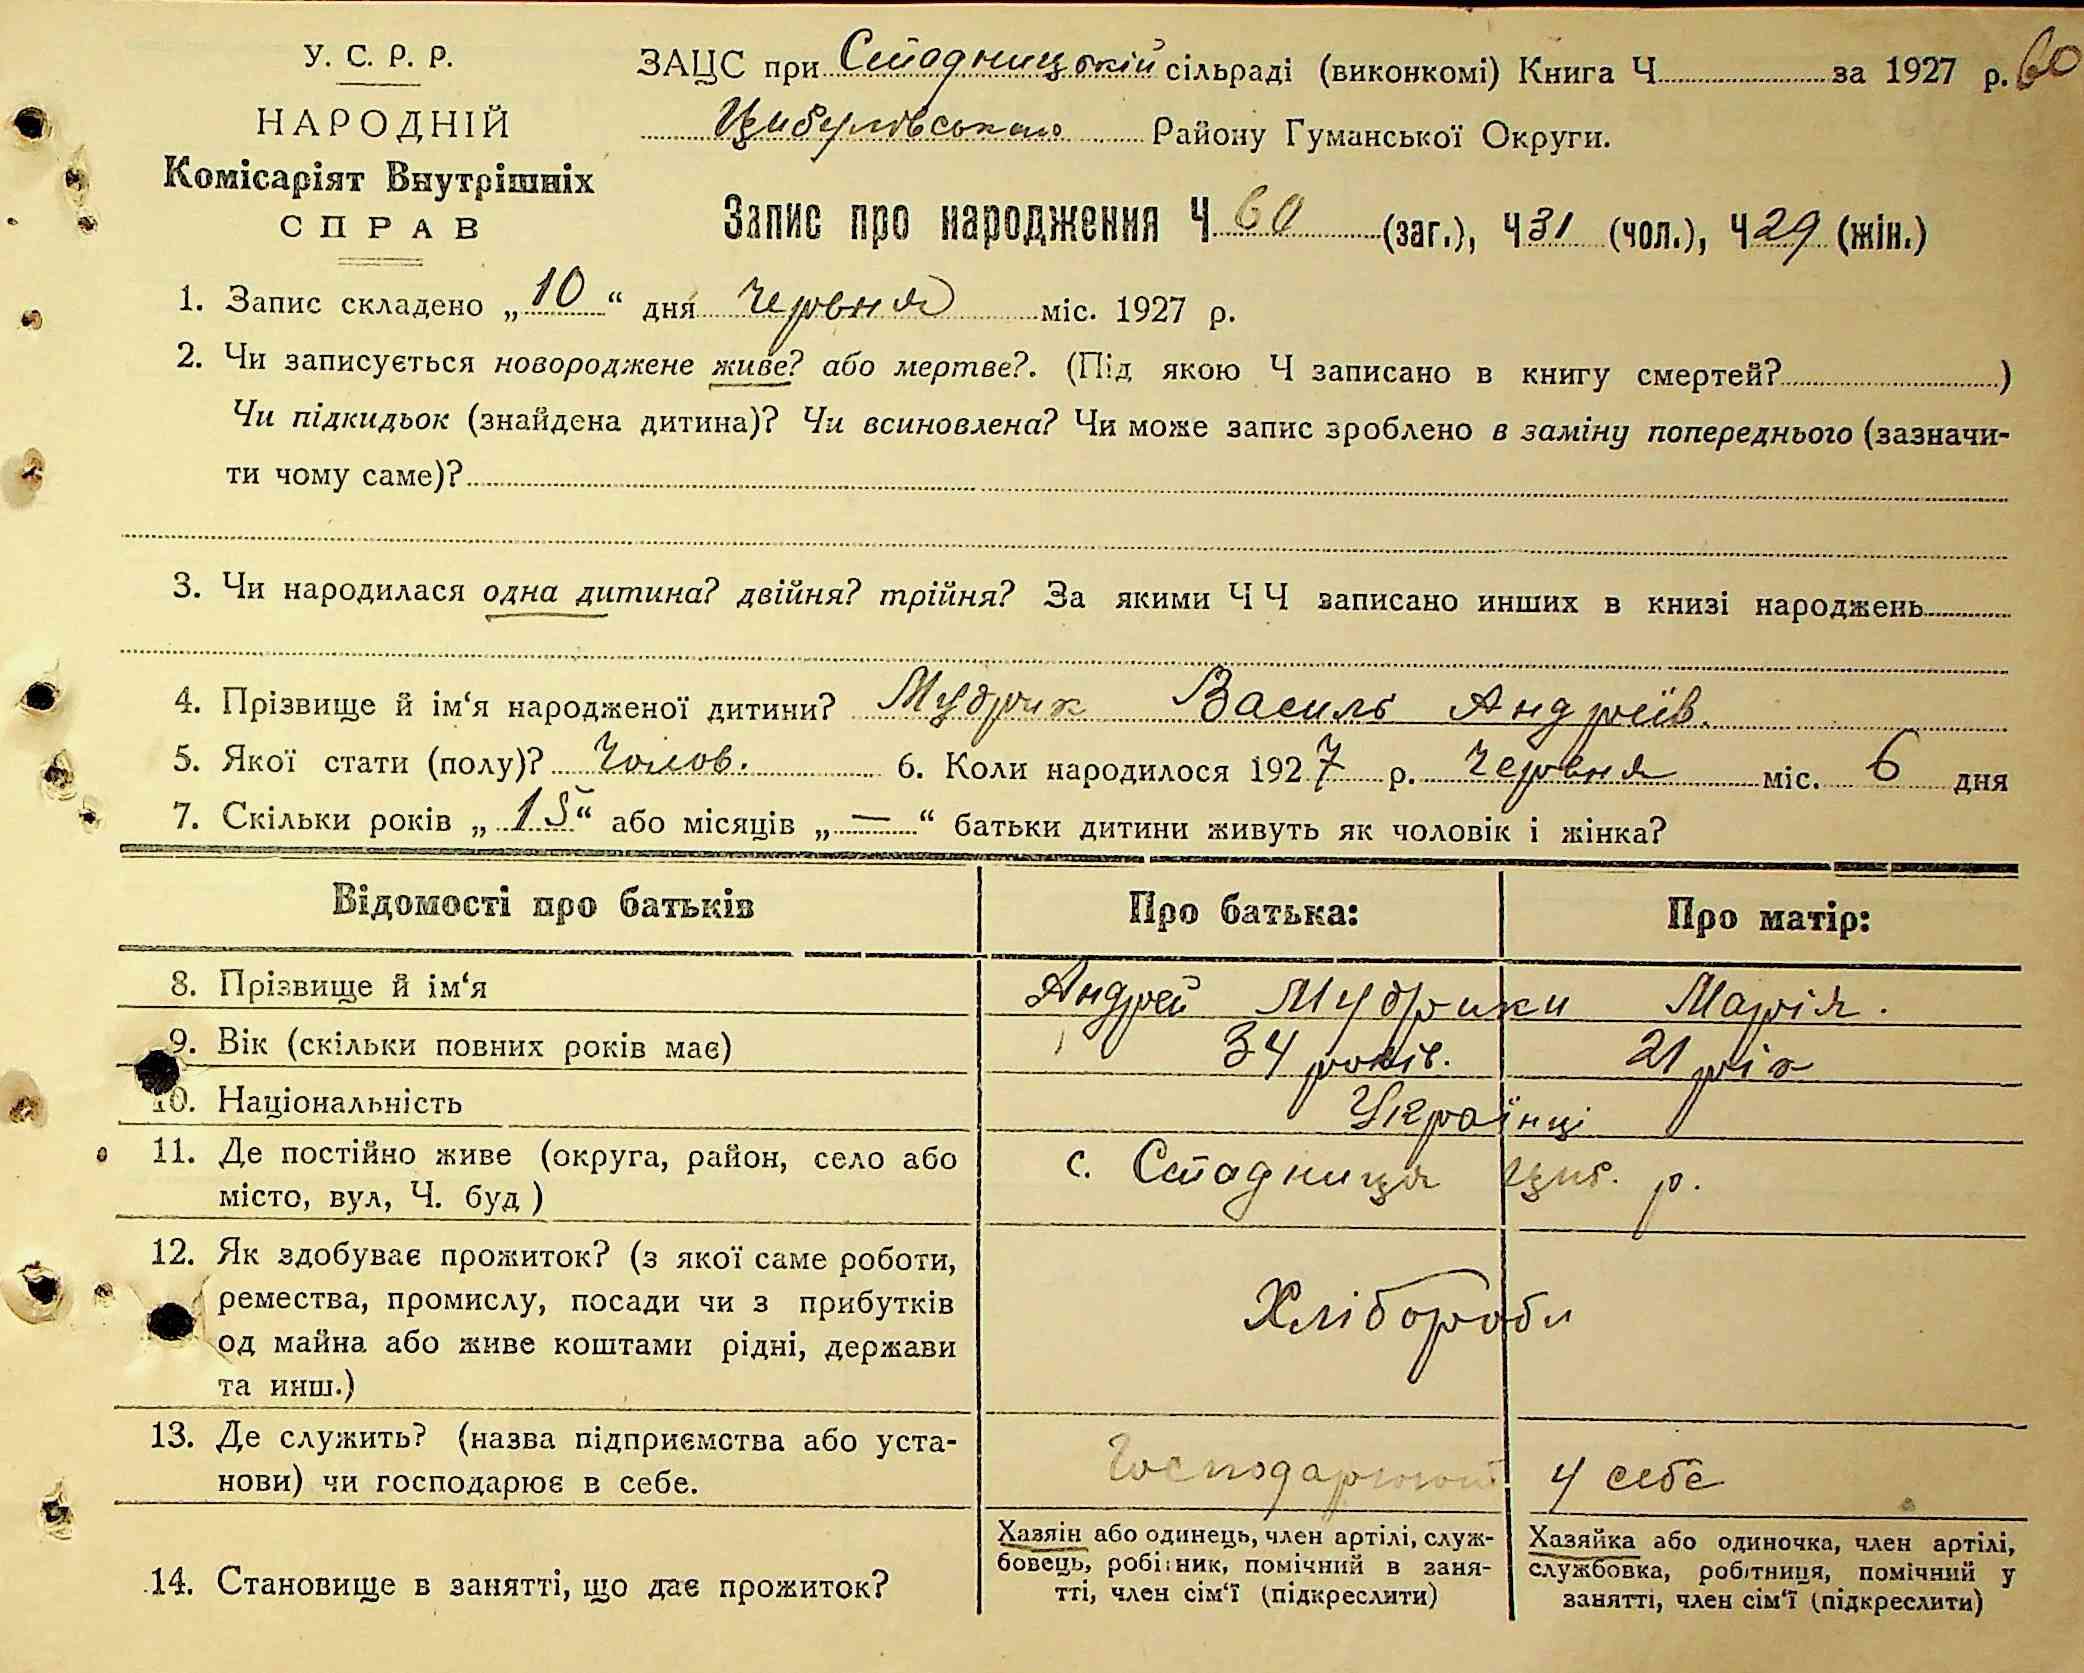 У. С. Р. Р.
НАРОДНІЙ
Комісаріят Внутрішніх
СПРАВ
ЗАЦС при Стадницькій сільраді (виконкомі) Книга Ч. за 1927 р. 60
Цибулівського Району Гуманської Округи.
Запис про народження Ч 60 (заг.), Ч 31 (чол.), Ч 29 (жін.)
1. Запис складено „ 10 “ дня червня міс. 1927 р.
2. Чи записується новороджене живе? або мертве?. (Під якою Ч записано в книгу смертей? )
Чи підкидьок (знайдена дитина)? Чи всиновлена? Чи може запис зроблено в заміну попереднього (зазначи-
ти чому саме)?
3. Чи народилася одна дитина? двійня? трійня? За якими ЧЧ записано инших в книзі народжень
4. Прізвище й ім‘я народженої дитини? Мудрик Василь Андріїв.
5. Якої стати (полу)? Чолов. 6. Коли народилося 1927 р. Червня міс. 6 дня
7. Скільки років „ 15 “ або місяців „ — “ батьки дитини живуть як чоловік і жінка?
Відомості про батьків Про батька: Про матір:
8. Прізвище й ім‘я Андрей Мудрики Марія.
9. Вік (скільки повних років має) 34 років. 21 рік
10. Національність Українці
11. Де постійно живе (округа, район, село або
місто, вул, Ч. буд ) с. Стадниця Циб. р.
12. Як здобуває прожиток? (з якої саме роботи,
ремества, промислу, посади чи з прибутків
од майна або живе коштами рідні, держави
та инш.)
Хлібороби
13. Де служить? (назва підприємства або уста-
нови) чи господарює в себе.
Господарюют у себе
14. Становище в занятті, що дає прожиток?
Хазяїн або одинець, член артілі, служ-
бовець, робітник, помічний в заня-
тті, член сім‘ї (підкреслити)
Хазяйка або одиночка, член артілі,
службовка, робітниця, помічний у
занятті, член сім‘ї (підкреслити)